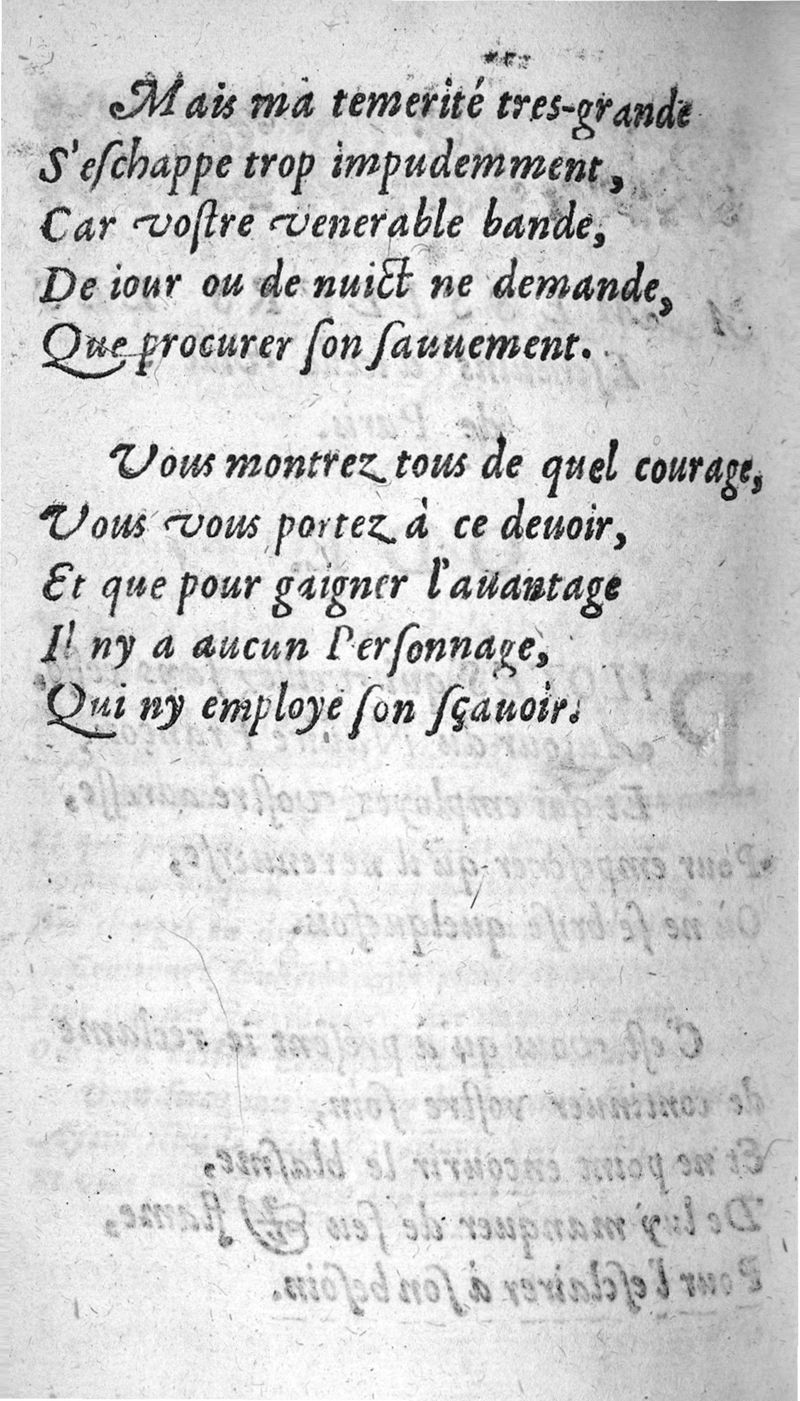 Mais ma temerité tres-grande
S'eſchappe trop impudemment,
Car voſtre venerable bande,
De iour ou de nuict ne demande,
Que procurer ſon ſauuement.
Vous montrez tous de quel courage,
Vous vous portez à ce deuoir,
Et que pour gaigner l'auantage
Il ny a aucun Perſonnage,
Qui ny employe ſon ſçauoir.